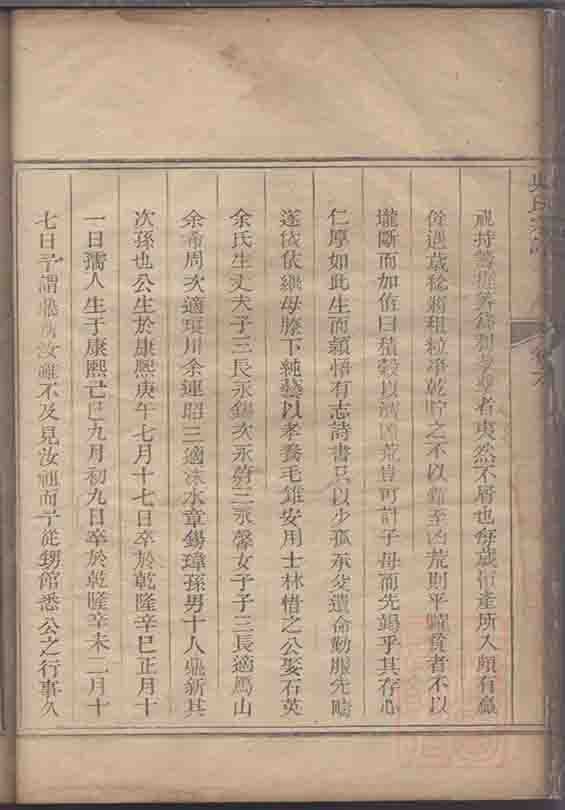 吳氏宗譜
卷六
視持籌握算為利孳孳者夷然不屑也每歲恒產所入頗有贏
餘遇歲稔將租粒凈乾貯之不以糶至凶荒則平糶貧者不以
壠斷而加值曰積穀以濟凶荒豈可計子母而先竭乎其存心
仁厚如此生而穎悟有志詩書只以少孤承父遺命勤服先疇
遂依依繼母膝下純藝以孝養毛雉安用士林惜之公娶石英
余氏生丈夫子三長永錫次永符三永馨女子子三長適馬山
余希周次適環川余連昭三適沫水章錫瑋孫男十人鼎新其
次孫也公生於康熙庚午七月十七日卒於乾隆辛巳正月十
一日孺人生于康熙己巳九月初九日卒於乾隆辛未二月十
七日予謂鼎新汝雖不及見汝祖而予從甥館悉公之行事久